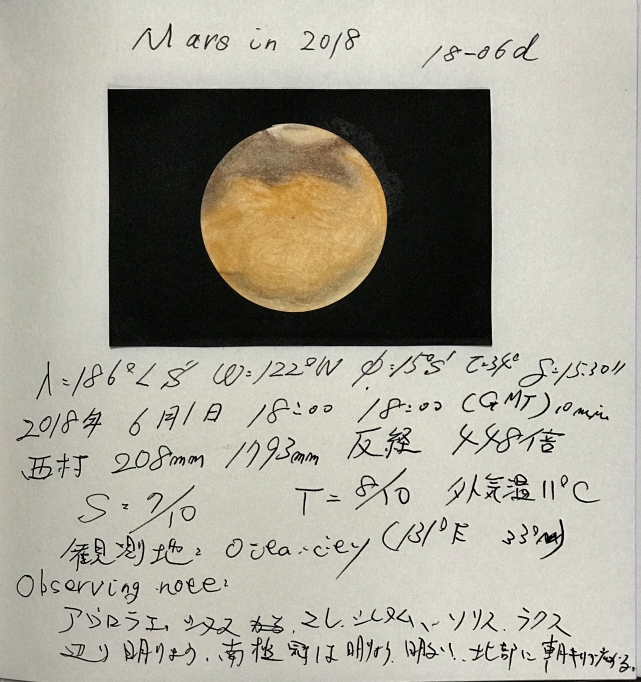 Mars in 2018
18-06d
λ=186° LS ω=122°W φ=15°S τ=34° δ=15.30"
2018年 6月1日 18:00 18:00 (GMT) 10 min
西村 208mm 1793mm 反経 448倍
S=7/10 T=8/10 外気温 11°C
観測地: Oita-city (131°E 33°N)
Observing note:
アウロラエ シヌス マレ. シレヌム、ソリス. ラクス
辺り 明りょう. 南極冠は明りょう. 明るい. 北部に朝キリが